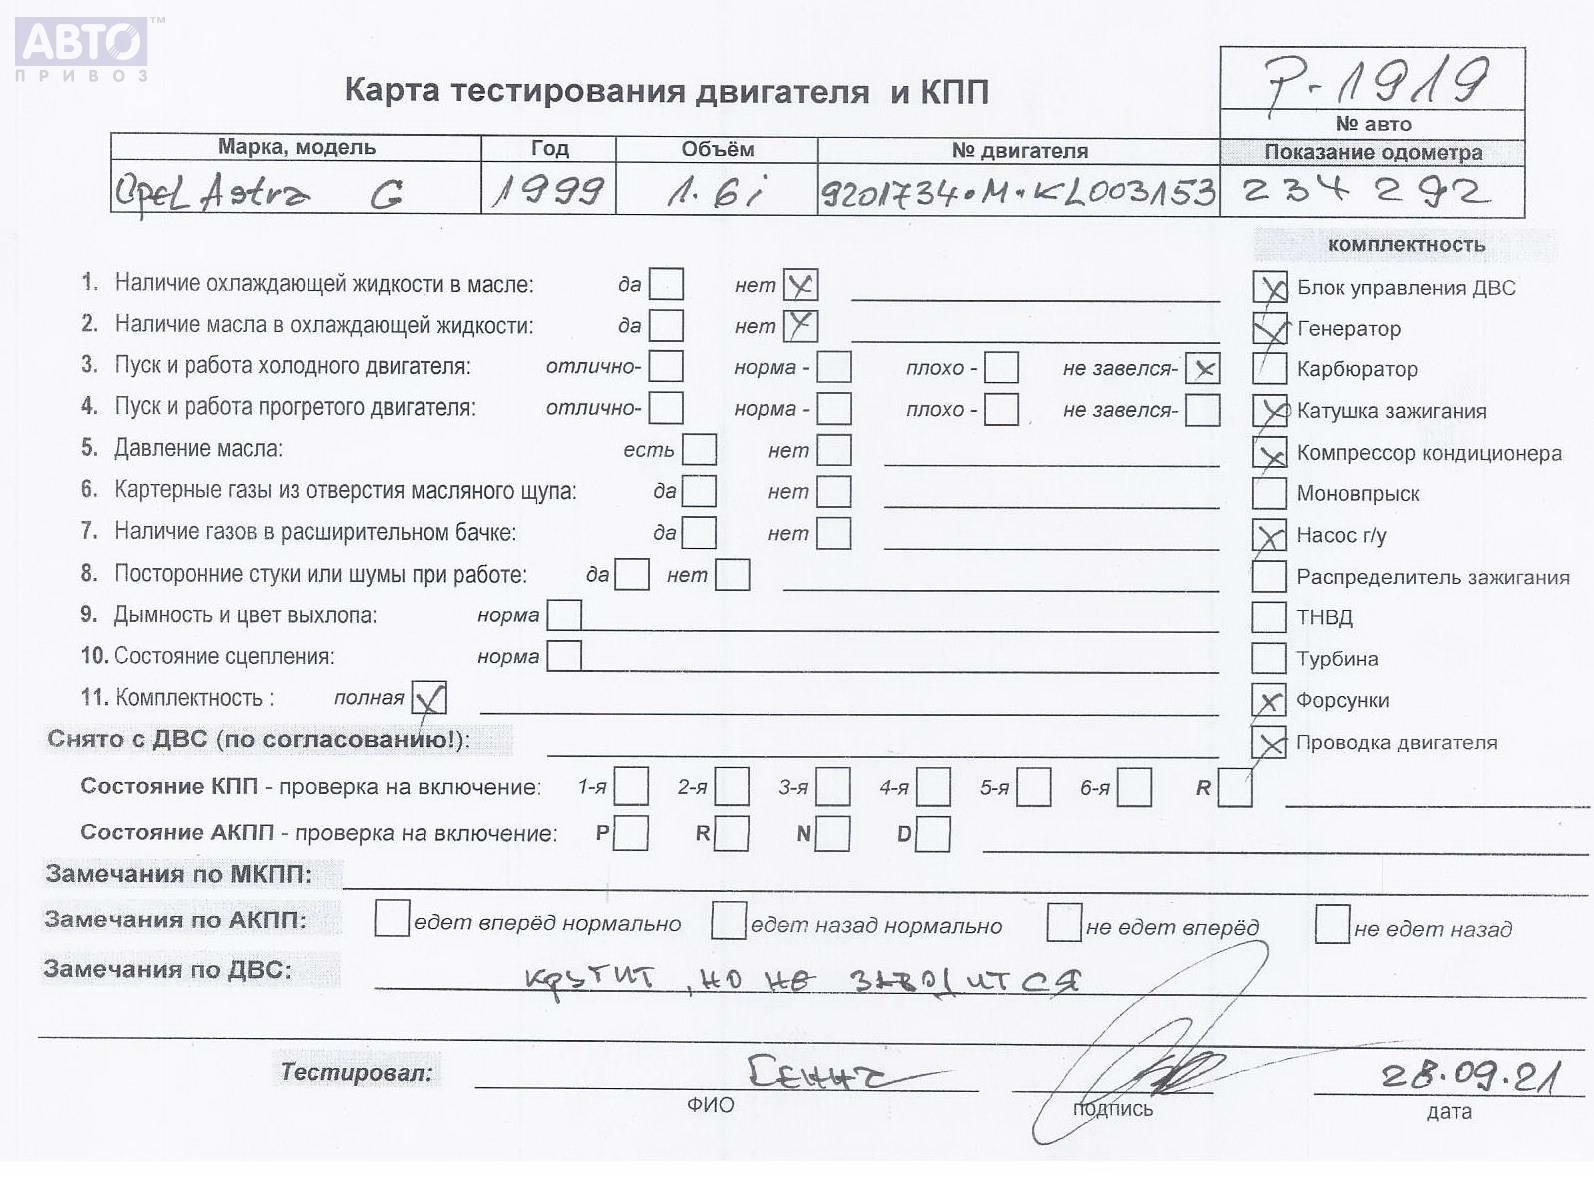 АВТО™
ПРИВОЗ
Карта тестирования двигателя и КПП
P-1919
№ авто
Марка, модель Год Объём № двигателя Показание одометра
Opel Astra G 1999 1.6i 9201734·M·KL003153 234292
комплектность
1. Наличие охлаждающей жидкости в масле: да нет Блок управления ДВС
2. Наличие масла в охлаждающей жидкости: да нет Генератор
3. Пуск и работа холодного двигателя: отлично- норма - плохо - не завелся- Карбюратор
4. Пуск и работа прогретого двигателя: отлично- норма - плохо - не завелся- Катушка зажигания
5. Давление масла: есть нет Компрессор кондиционера
6. Картерные газы из отверстия масляного щупа: да нет Моновпрыск
7. Наличие газов в расширительном бачке: да нет Насос г/у
8. Посторонние стуки или шумы при работе: да нет Распределитель зажигания
9. Дымность и цвет выхлопа: норма ТНВД
10. Состояние сцепления: норма Турбина
11. Комплектность : полная Форсунки
Снято с ДВС (по согласованию!): Проводка двигателя
Состояние КПП - проверка на включение: 1-я 2-я 3-я 4-я 5-я 6-я R
Состояние АКПП - проверка на включение: P R N D
Замечания по МКПП:
Замечания по АКПП: едет вперёд нормально едет назад нормально не едет вперёд не едет назад
Замечания по ДВС: крутит, но не заводится
Тестировал: 28.09.21
ФИО подпись дата